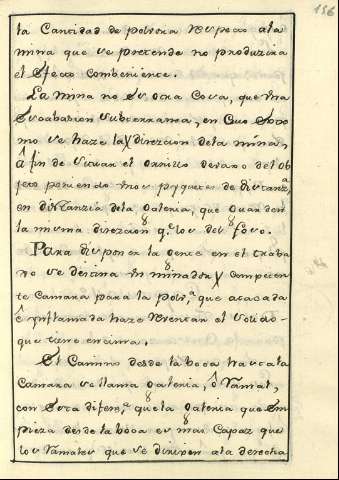 156
la Cantidad de polvora respecto ala
mina que se pretende no produzira
el efecto combeniente.
La mina no es otra Cosa, que una
Escabasion subterranea, en Cuo Estre
mo se haze la direzcion dela mina,
â fin de situar el ornillo devaxo del ob
jeto poniendo unos pyquetes de distanz.ª
en distanzia dela galeria, que guarden
la misma direzcion q.e los del foso.
Para disponer la gente en el traba
xo se destina un minador competen
te Camara para la polv.ª que atacada
ê ynflamada haze rebentar el solido
que tiene encima.
El Camino desde la boca hasta la
Camara se llama galeria, ô Ramal,
con esta diferen.ª que la galeria que em
pieza desde la boca es mas Capaz que
los Ramales que se dirijen ala derecha